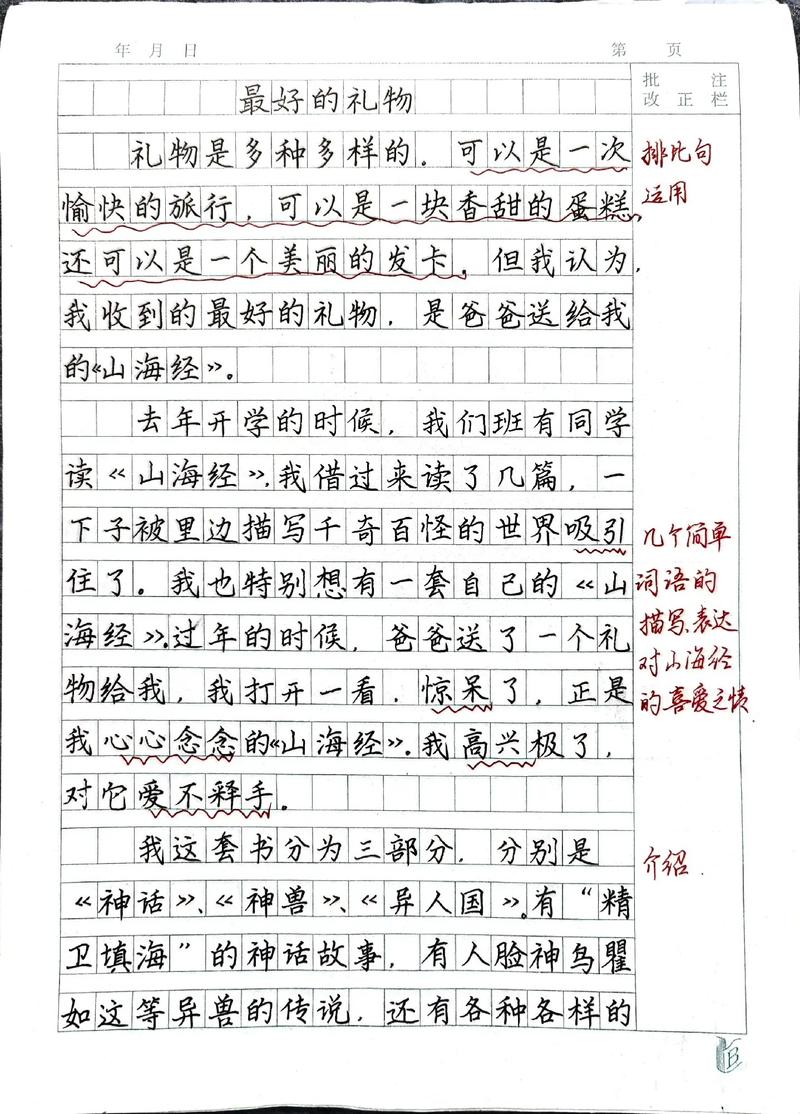 年 月 日 第 页
批 注
改 正 栏
最好的礼物
礼物是多种多样的。可以是一次
愉快的旅行，可以是一块香甜的蛋糕，
还可以是一个美丽的发卡。但我认为，
我收到的最好的礼物，是爸爸送给我
的《山海经》。
去年开学的时候，我们班有同学
读《山海经》，我借过来读了几篇，一
下子被里边描写千奇百怪的世界吸引
住了。我也特别想有一套自己的《山
海经》。过年的时候，爸爸送了一个礼
物给我，我打开一看，惊呆了，正是
我心心念念的《山海经》。我高兴极了，
对它爱不释手。
我这套书分为三部分，分别是
《神话》、《神兽》、《异人国》。有“精
卫填海”的神话故事，有人脸神鸟瞿
如这等异兽的传说，还有各种各样的
排比句
运用
几个简单
词语的
描写,表达
对山海经
的喜爱之情
介绍.
B